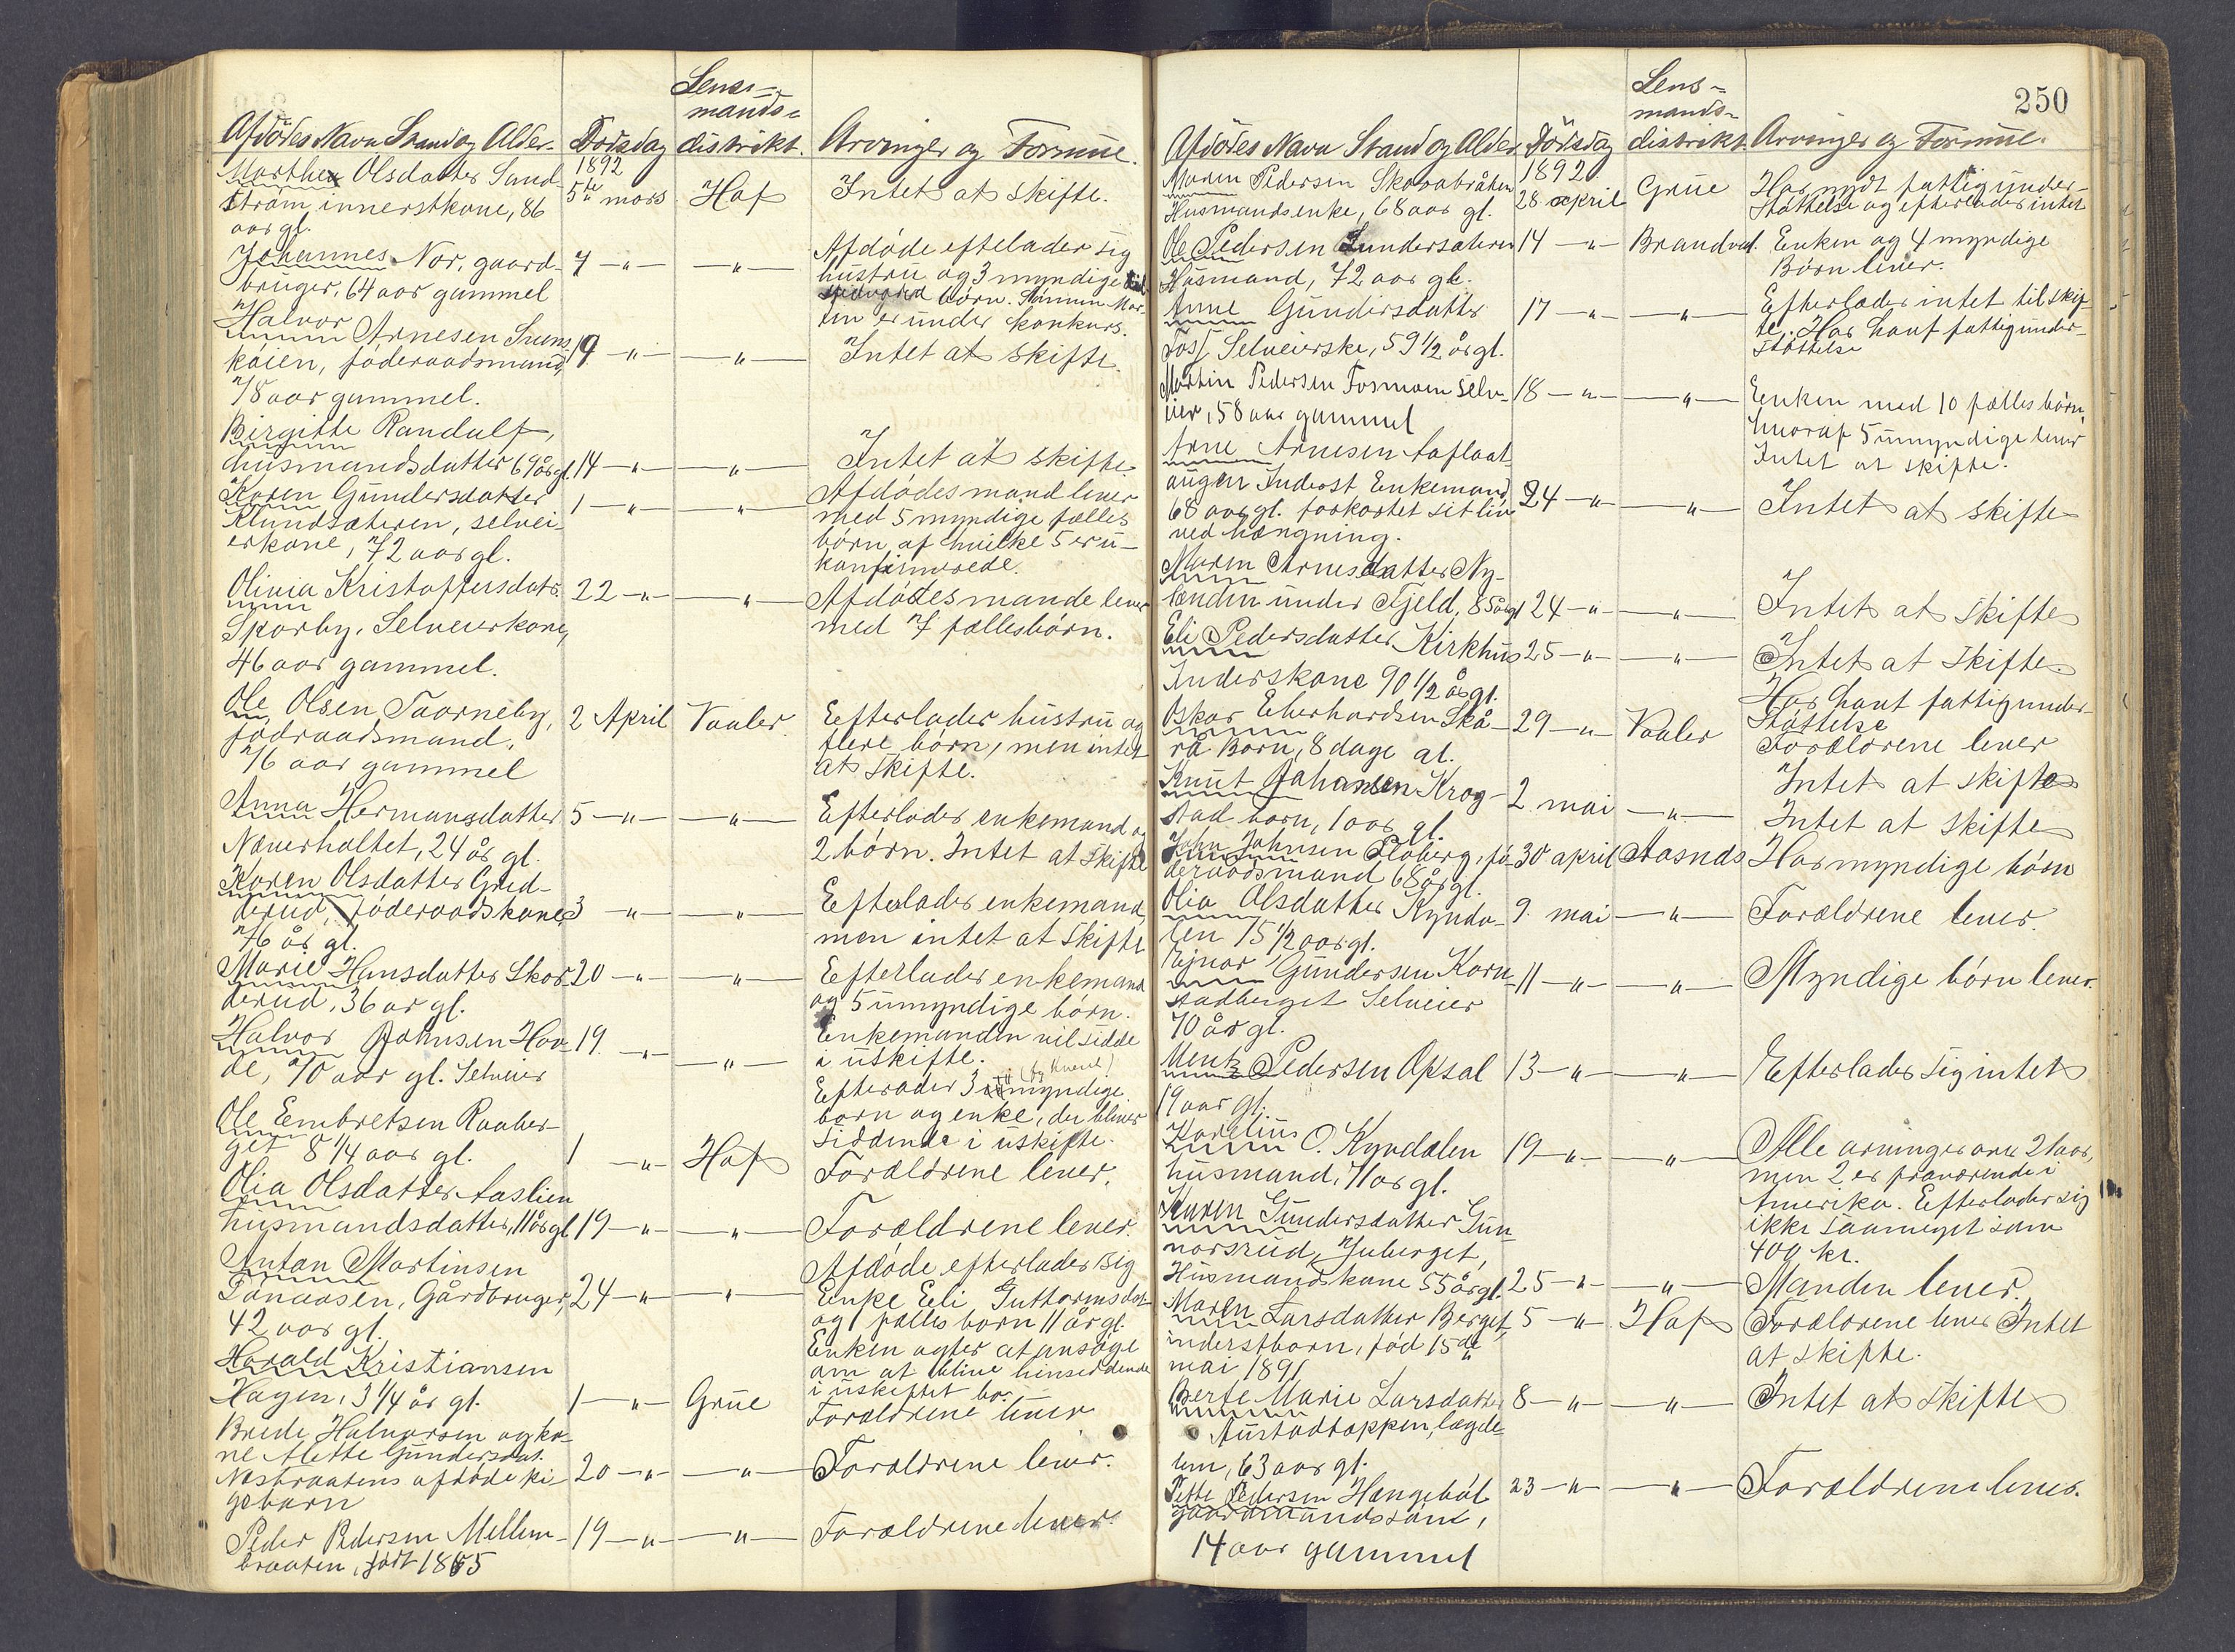 Lens-
mands-
Afdødes Navn Stand og Alder. Dødsdag distrikt. Arvinger og Formue.
1892
Marthea Olsdatter Sand-
strøm innerstkone, 86 5te mars Hof Intet at skifte.
aar gl.
Johannes Nor, gaard- 7 -"- -"- Afdøde eftelader sig
bruger, 64 aar gammel hustru og 3 myndige
børn. Sønnen Mar-
tin er under konkurs.
Halvor Arnesen
køien, føderaadsmand, 19 -"- -"- Intet at skifte.
78 aar gammel.
Birgitte Randulf,
husmandsdatter 69 år gl. 14 -"- -"- Intet at skifte
Karen Gundersdatter 1 -"- -"- Afdødes mand lever
Klundsæteren, selvei- med 5 myndige fælles
erkone, 72 aar gl. børn af hvilke 5 er u-
konfirmerede.
Olivia Kristoffersdatr. 22 -"- -"- Afdødes mande lever
Skorby, Selveierkone, med 7 fællesbørn.
46 aar gammel.
Ole Olsen Taarneby, 2 April Vaaler. Eefterlader hustru og
fødraadsmand, flere børn, men intet
76 aar gammel at skifte.
Anna Hermansdatter 5 -"- -"- Efterlader enkemand og
Næverholtet, 24 år gl. 2 børn. Intet at skifte
Karen Olsdatter Gred-
derud, føderaadskone, 3 -"- -"- Efterlader enkemand,
76 år gl. men intet at skifte
Marie Hansdatter Skor- 20 -"- -"- Efterlader enkemand
derud, 36 ar gl. og 5 umyndige børn.
Enkemanden vil sidde
i uskifte.
Halvor Johnsen Hav- 19. -"- -"-
de, 70 aar gl. Selveier Efterader 3 myndige
børn og enke, der bliver
siddende i uskifte.
Ole Eembretsen Raaber-
get 8 1/4 aar gl. 1 -"- Hof Forældrene lever.
Olia Olsdatter Aaslien
husmandsdatter, 11 år gl 19 -"- -"- Forældrene lever.
Anton Martinsen
Tønaasen, Gårdbruger, 24 -"- -"- Afdøde efterlader sig
42 aar gl. Enke Eli Guttormsdat
og 1 fælles barn 11 år gl.
Enken agter at ansøge
om at blive hinsiddende
i uskiftet bo.
Harald Kristiansen
Hagen, 3 1/4 år gl. 1 -"- Grue Forældrene lever
Brede Halvorsen og ko-
ne Mette Gundersdat.
Næsbraatens afdøde pi- 20 -"- -"- Forældrene lever.
gebarn
Peder Pedersen Mellem- 19 -"- -"- Forældrene lever.
braaten, født 1865
250
Lens-
mands-
Afdødes Navn Stand og Alder Dödsdag distrikt. Arvinger og Formue.
1892.
Maren Pedersen Skarabråten 28 april Grue Har nydt fattigunder-
Husmandsenke, 68 aar gl. støttelse og efterlader intet
Ole Pedersen Lundersæteren 14 -"- Brandval. Enken og 4 myndige
Husmand, 72 aar gl. Børn lever.
Anne Gundersdatter 17 -"- -"- Efterlader intet til skif-
Foss Selveierske, 59 1/2 år gl. te. Har havt fattigunder-
støttelse
Martin Pedersen Fosmoen selv- 18 -"- -"- Enken med 10 fælles børn,
eier, 58 aar gammel hvoraf 5 umyndige lever
Intet at skifte.
Arne Arnesen Aaflaat
augen Inderst Enkemand 24 -"- -"- Intet at skifte
68 aar gl. forkortet sit liv
ved hængning.
Maren Arnesdatter Ny-
lænden under Fjeld, 85 år gl 24 -"- -"- Intet at skifte
Eli Pedersdatter Kirkhus 25 -"- -"- Intet at skifte.
Inderskone 90 1/2 år gl. Har havt fattigunder-
støttelse
Oskar Eberhardsen Skå- 29 -"- Vaaler Forældrene lever
rå Barn, 8 dage gl. Intet at skifte
Knut Johansen Krog- 2 mai -"- Intet at skifte
stad barn, 1 aar gl.
John Johnsen Floberg, fø- 30 april Aasnes Har myndige børn
deraadsmand 68 år gl.
Olia Olsdatter Kynda- 9. mai -"- Forældrene lever.
len 15 1/2 aar gl.
Ejnar Gundersen Korn- 11 -"- -"- Myndige børn lever.
stadberget Selveier
70 år gl.
Mentz Pedersen Opsal 13 -"- -"- Efterlader sig intet
19 aar gl.
Karelius O. Kyndalen 19 -"- -"- Alle arvinger over 21 aar,
husmand, 71 ar gl. men 2 er fraværende i
Amerika. Efterlader sig
ikke saameget som
400 kr.
Karen Gundersdatter Gun-
norsrud, Juberget,
Husmandskone 55 år gl. 25 -"- -"- Manden lever.
Maren Larsdatter Berget, 5 -"- Hof Forældrene lever Intet
inderstbarn, fød 15de at skifte.
mai 1891
Berte Marie Larsdatter 8 -"- -"- Intet at skifte
Austadtoppen, lægde-
lem, 63 aar gl.
Peder Pedersen Hængebøl 23 -"- -"- Forældrene lever.
gaardmandssøn,
14 aar gammel